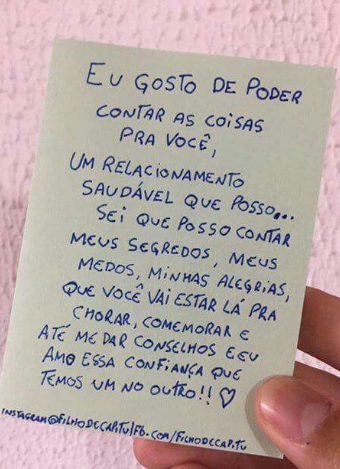 EU GOSTO DE PODER
CONTAR AS COISAS
PRA VOCÊ,
UM RELACIONAMENTO
SAUDÁVEL QUE POSSO...
SEI QUE POSSO CONTAR
MEUS SEGREDOS, MEUS
MEDOS, MINHAS ALEGRIAS,
QUE VOCÊ VAI ESTAR LÁ PRA
CHORAR, COMEMORAR E
ATÉ ME DAR CONSELHOS E EU
AMO ESSA CONFIANÇA QUE
TEMOS UM NO OUTRO!! ♡
INSTAGRAM@FILHODECAPITU/FB.COM/FILHODECAPITU